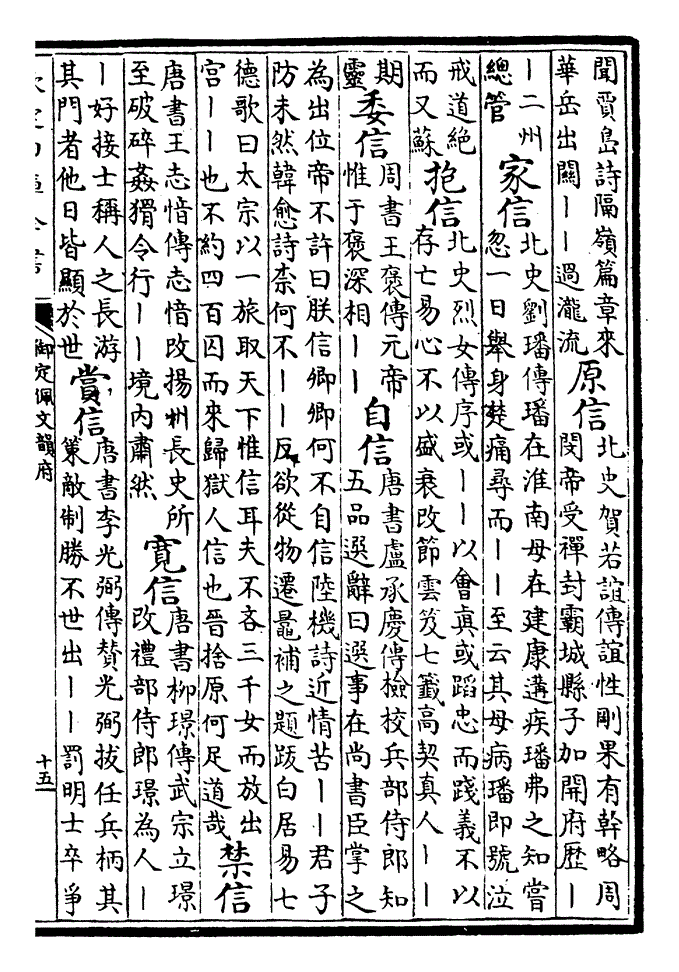 聞賈島詩隔嶺篇章來
華岳出關丨丨過瀧流
原信
北史賀若誼傳誼性剛果有幹略周
閔帝受禪封霸城縣子加開府歷丨
丨二州
總管
家信
北史劉璠傳璠在淮南母在建康遘疾璠弗之知嘗
忽一日舉身楚痛尋而丨丨至云其母病璠即號泣
戒道絶
而又蘇
抱信
北史烈女傳序或丨丨以會真或蹈忠而踐義不以
存亡易心不以盛衰改節雲笈七籤高契真人丨丨
期
靈
委信
周書王褒傳元帝
惟于褒深相丨丨
自信
唐書盧承慶傳檢校兵部侍郎知
五品選辭曰選事在尚書臣掌之
為出位帝不許曰朕信卿卿何不自信陸機詩近情苦丨丨君子
防未然韓愈詩柰何不丨丨反欲從物遷鼂補之題跋白居易七
德歌曰太宗以一旅取天下惟信耳夫不吝三千女而放出
宫丨丨也不約四百囚而來歸獄人信也晉捨原何足道哉
禁信
唐書王志愔傳志愔改揚州長史所
至破碎姦猾令行丨丨境内肅然
寛信
唐書柳璟傳武宗立璟
改禮部侍郎璟為人丨
丨好接士稱人之長游
其門者他日皆顯於世
賞信
唐書李光弼傳贊光弼拔任兵柄其
策敵制勝不世出丨丨罰明士卒爭
御定佩文韻府
十五